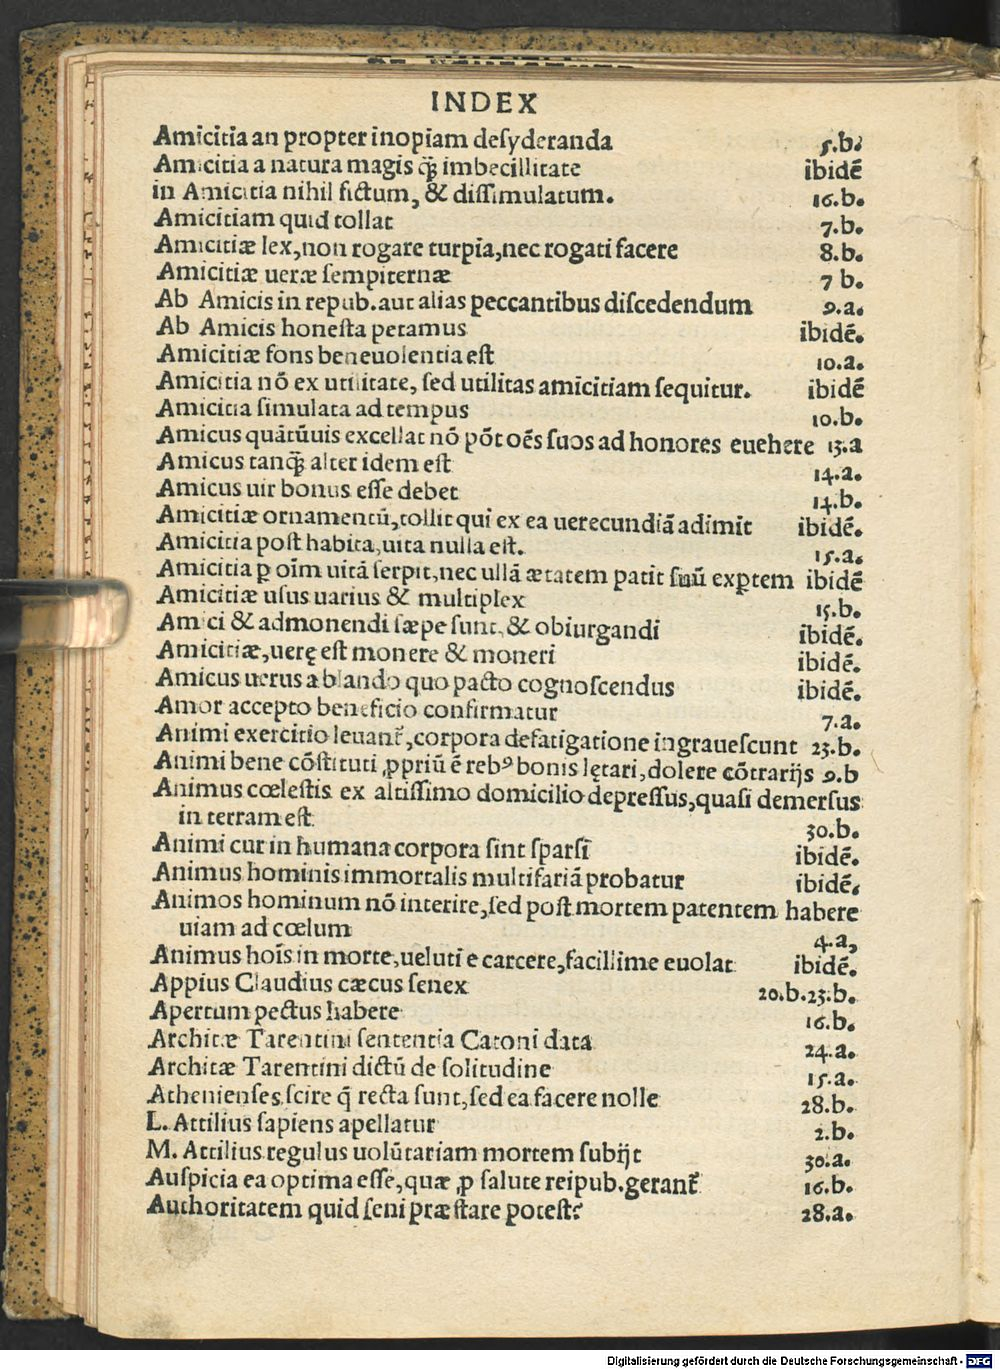 INDEX
Amicitia an propter inopiam desyderanda 5.b.
Amicitia a natura magis q̃ imbecillitate ibidē
in Amicitia nihil fictum, & dissimulatum. 16.b.
Amicitiam quid tollat 7.b.
Amicitiæ lex, non rogare turpia, nec rogati facere 8.b.
Amicitiæ ueræ sempiternæ 7 b.
Ab Amicis in repub. aut alias peccantibus discedendum 9.a.
Ab Amicis honesta petamus ibidē.
Amicitiæ fons beneuolentia est 10.a.
Amicitia nō ex utilitate, sed utilitas amicitiam sequitur. ibidē
Amicitia simulata ad tempus 10.b.
Amicus quātūuis excellat nō pōt oēs suos ad honores euehere 13.a
Amicus tanq̃ alter idem est 14.a.
Amicus uir bonus esse debet 14.b.
Amicitiæ ornamentū, tollit qui ex ea uerecundiā adimit ibidē.
Amicitia post habita, uita nulla est. 15.a.
Amicitia ꝑ oīm uitā serpit, nec ullā ætatem patit suū exꝑtem ibidē
Amicitiæ usus uarius & multiplex 15.b.
Amici & admonendi sæpe sunt, & obiurgandi ibidē.
Amicitiæ, uerę est monere & moneri ibidē.
Amicus uerus a blando quo pacto cognoscendus ibidē.
Amor accepto beneficio confirmatur 7.a.
Animi exercitio leuant᷑, corpora defatigatione ingrauescunt 23.b.
Animi bene cōstituti ꝓpriū ē rebꝰ bonis lętari, dolere cōtrarijs 9.b
Animus cœlestis ex altissimo domicilio depressus, quasi demersus
in terram est 30.b.
Animi cur in humana corpora sint sparsī ibidē.
Animus hominis immortalis multifariā probatur ibidē.
Animos hominum nō interire, sed post mortem patentem habere
uiam ad cœlum 4.a,
Animus hoīs in morte, ueluti e carcere, facillime euolat ibidē.
Appius Claudius cæcus senex 20.b.23.b.
Apertum pectus habere 16.b.
Architæ Tarentini sententia Catoni data 24.a.
Architæ Tarentini dictū de solitudine 15.a.
Athenienses scire q̄ recta sunt, sed ea facere nolle 28.b.
L. Attilius sapiens apellatur 2.b.
M. Attilius regulus uolūtariam mortem subijt 30.a.
Auspicia ea optima esse, quæ ꝓ salute reipub. gerant᷑ 16.b.
Authoritatem quid seni præstare potest? 28.a.
Digitalisierung gefördert durch die Deutsche Forschungsgemeinschaft - DFG